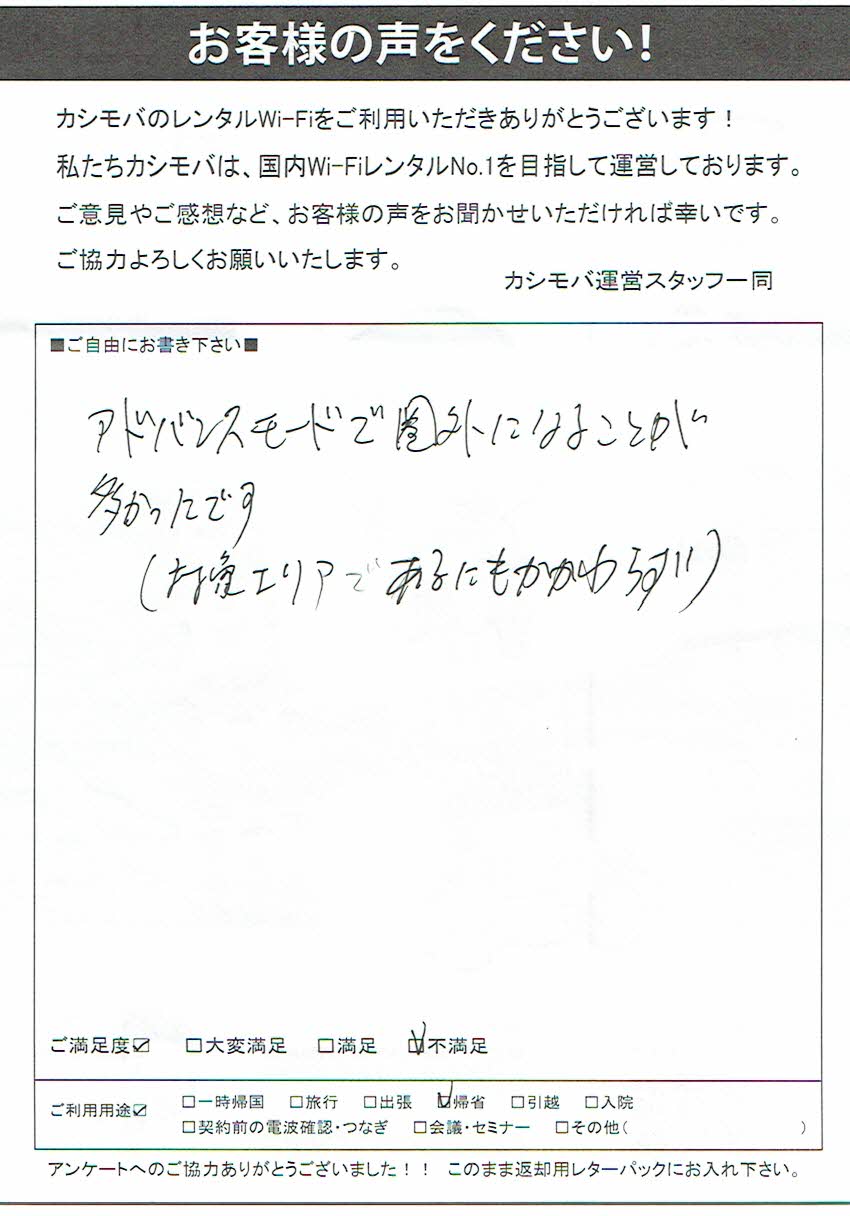 お客様の声をください!
カシモバのレンタルWi-Fiをご利用いただきありがとうございます！
私たちカシモバは、国内Wi-FiレンタルNo.1を目指して運営しております。
ご意見やご感想など、お客様の声をお聞かせいただければ幸いです。
ご協力よろしくお願いいたします。
カシモバ運営スタッフ一同
■ご自由にお書き下さい■
アドバンスモードで圏外になることが
多かったです
(対象エリアであるにもかかわらず!!)
ご満足度☑ □大変満足 □満足 ☑不満足
ご利用用途☑ □一時帰国 □旅行 □出張 ☑帰省 □引越 □入院
□契約前の電波確認・つなぎ □会議・セミナー □その他( )
アンケートへのご協力ありがとうございました！！ このまま返却用レターパックにお入れ下さい。